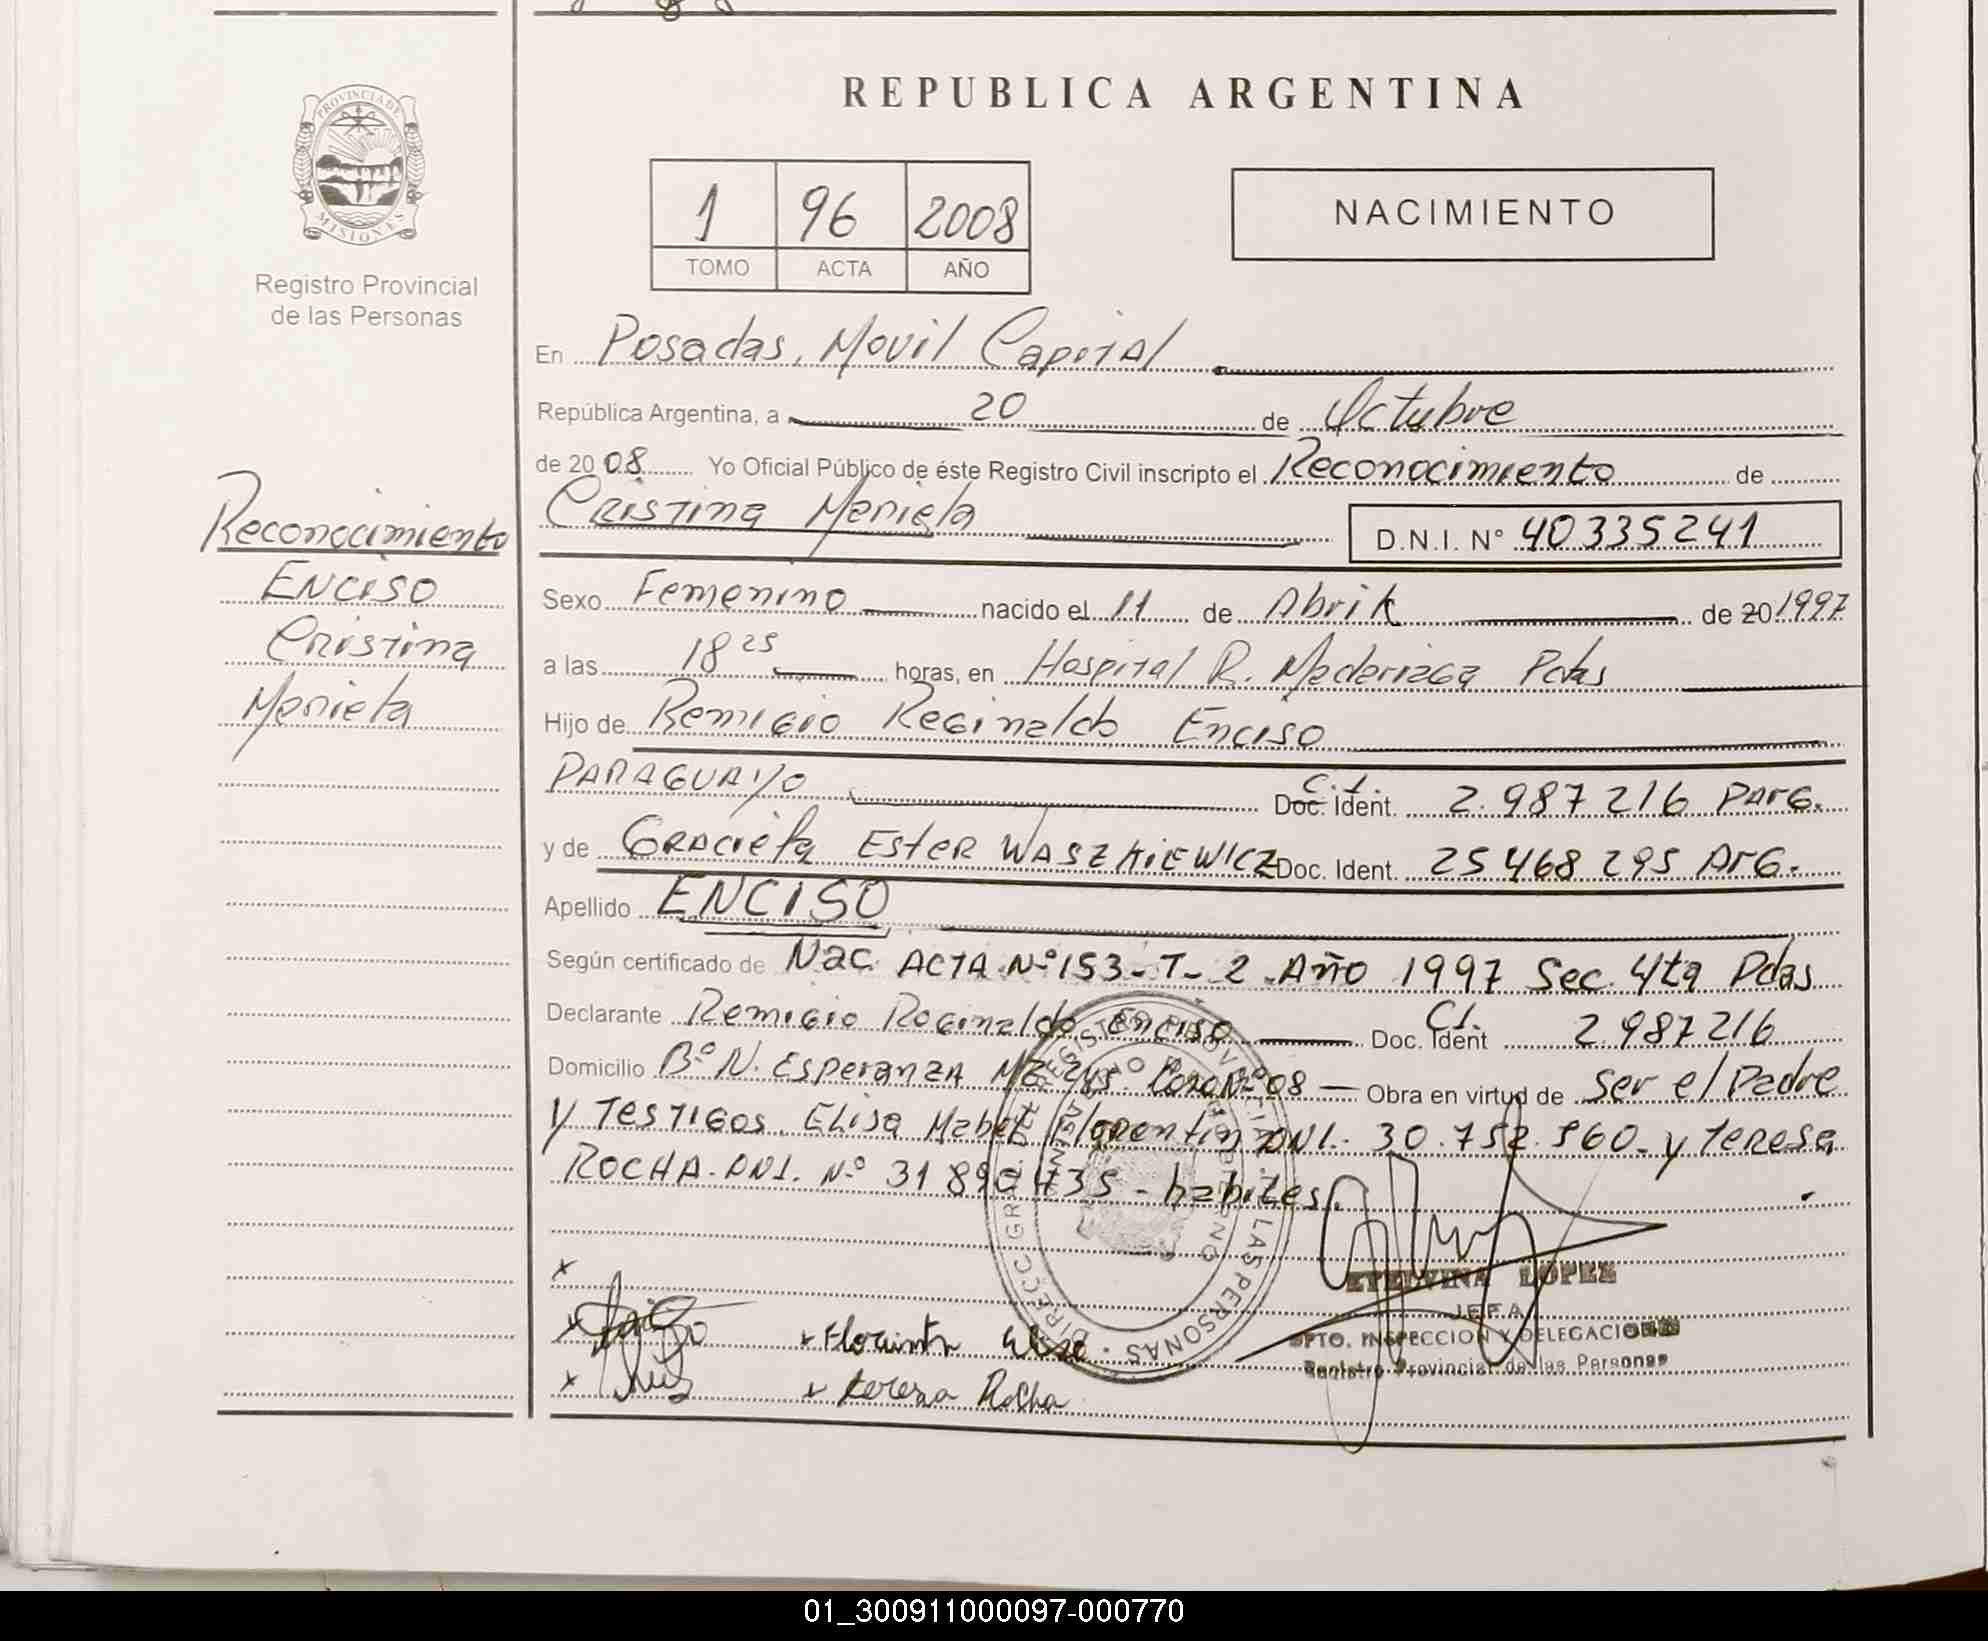 REPUBLICA ARGENTINA
PROVINCIA DE
MISIONES
Registro Provincial
de las Personas
1 96 2008
TOMO ACTA AÑO
NACIMIENTO
En Posadas, Movil Capital
República Argentina, a 20 de Octubre
de 20 08 Yo Oficial Público de éste Registro Civil inscripto el Reconocimiento de
Cristina Mariela
D.N.I. N° 40335241
Reconocimiento
ENCISO
Cristina
Mariela
Sexo Femenino nacido el 11 de Abril de 20 1997
a las 18 25 horas, en Hospital R. Madariaga Pdas
Hijo de Remigio Reginaldo Enciso
PARAGUAYO C.I. Doc. Ident. 2.987216 Parg.
y de Graciela Ester WASZKIEWICZ Doc. Ident. 25468295 Arg.
Apellido ENCISO
Según certificado de Nac. ACTA Nº 153-T-2 Año 1997 Sec. 4ta Pdas
Declarante Remigio Reginaldo Enciso C.I. Doc. Ident 2.987216
Domicilio Bº N. Esperanza Mz 245 Nº 08 Obra en virtud de Ser el Padre
y Testigos. Elisa Mabel Florentin DNI. 30.752.560. y teresa
ROCHA. DNI. Nº 31890435 - habiles.
x
x
x Florintin Elisa
x
x teresa Rocha
DIRECC. GRAL. DEL REGISTRO PROVINCIAL DE LAS PERSONAS
ETELVINA LOPEZ
JEFA
DPTO. INSPECCION Y DELEGACIONES
Registro Provincial de las Personas
01_300911000097-000770